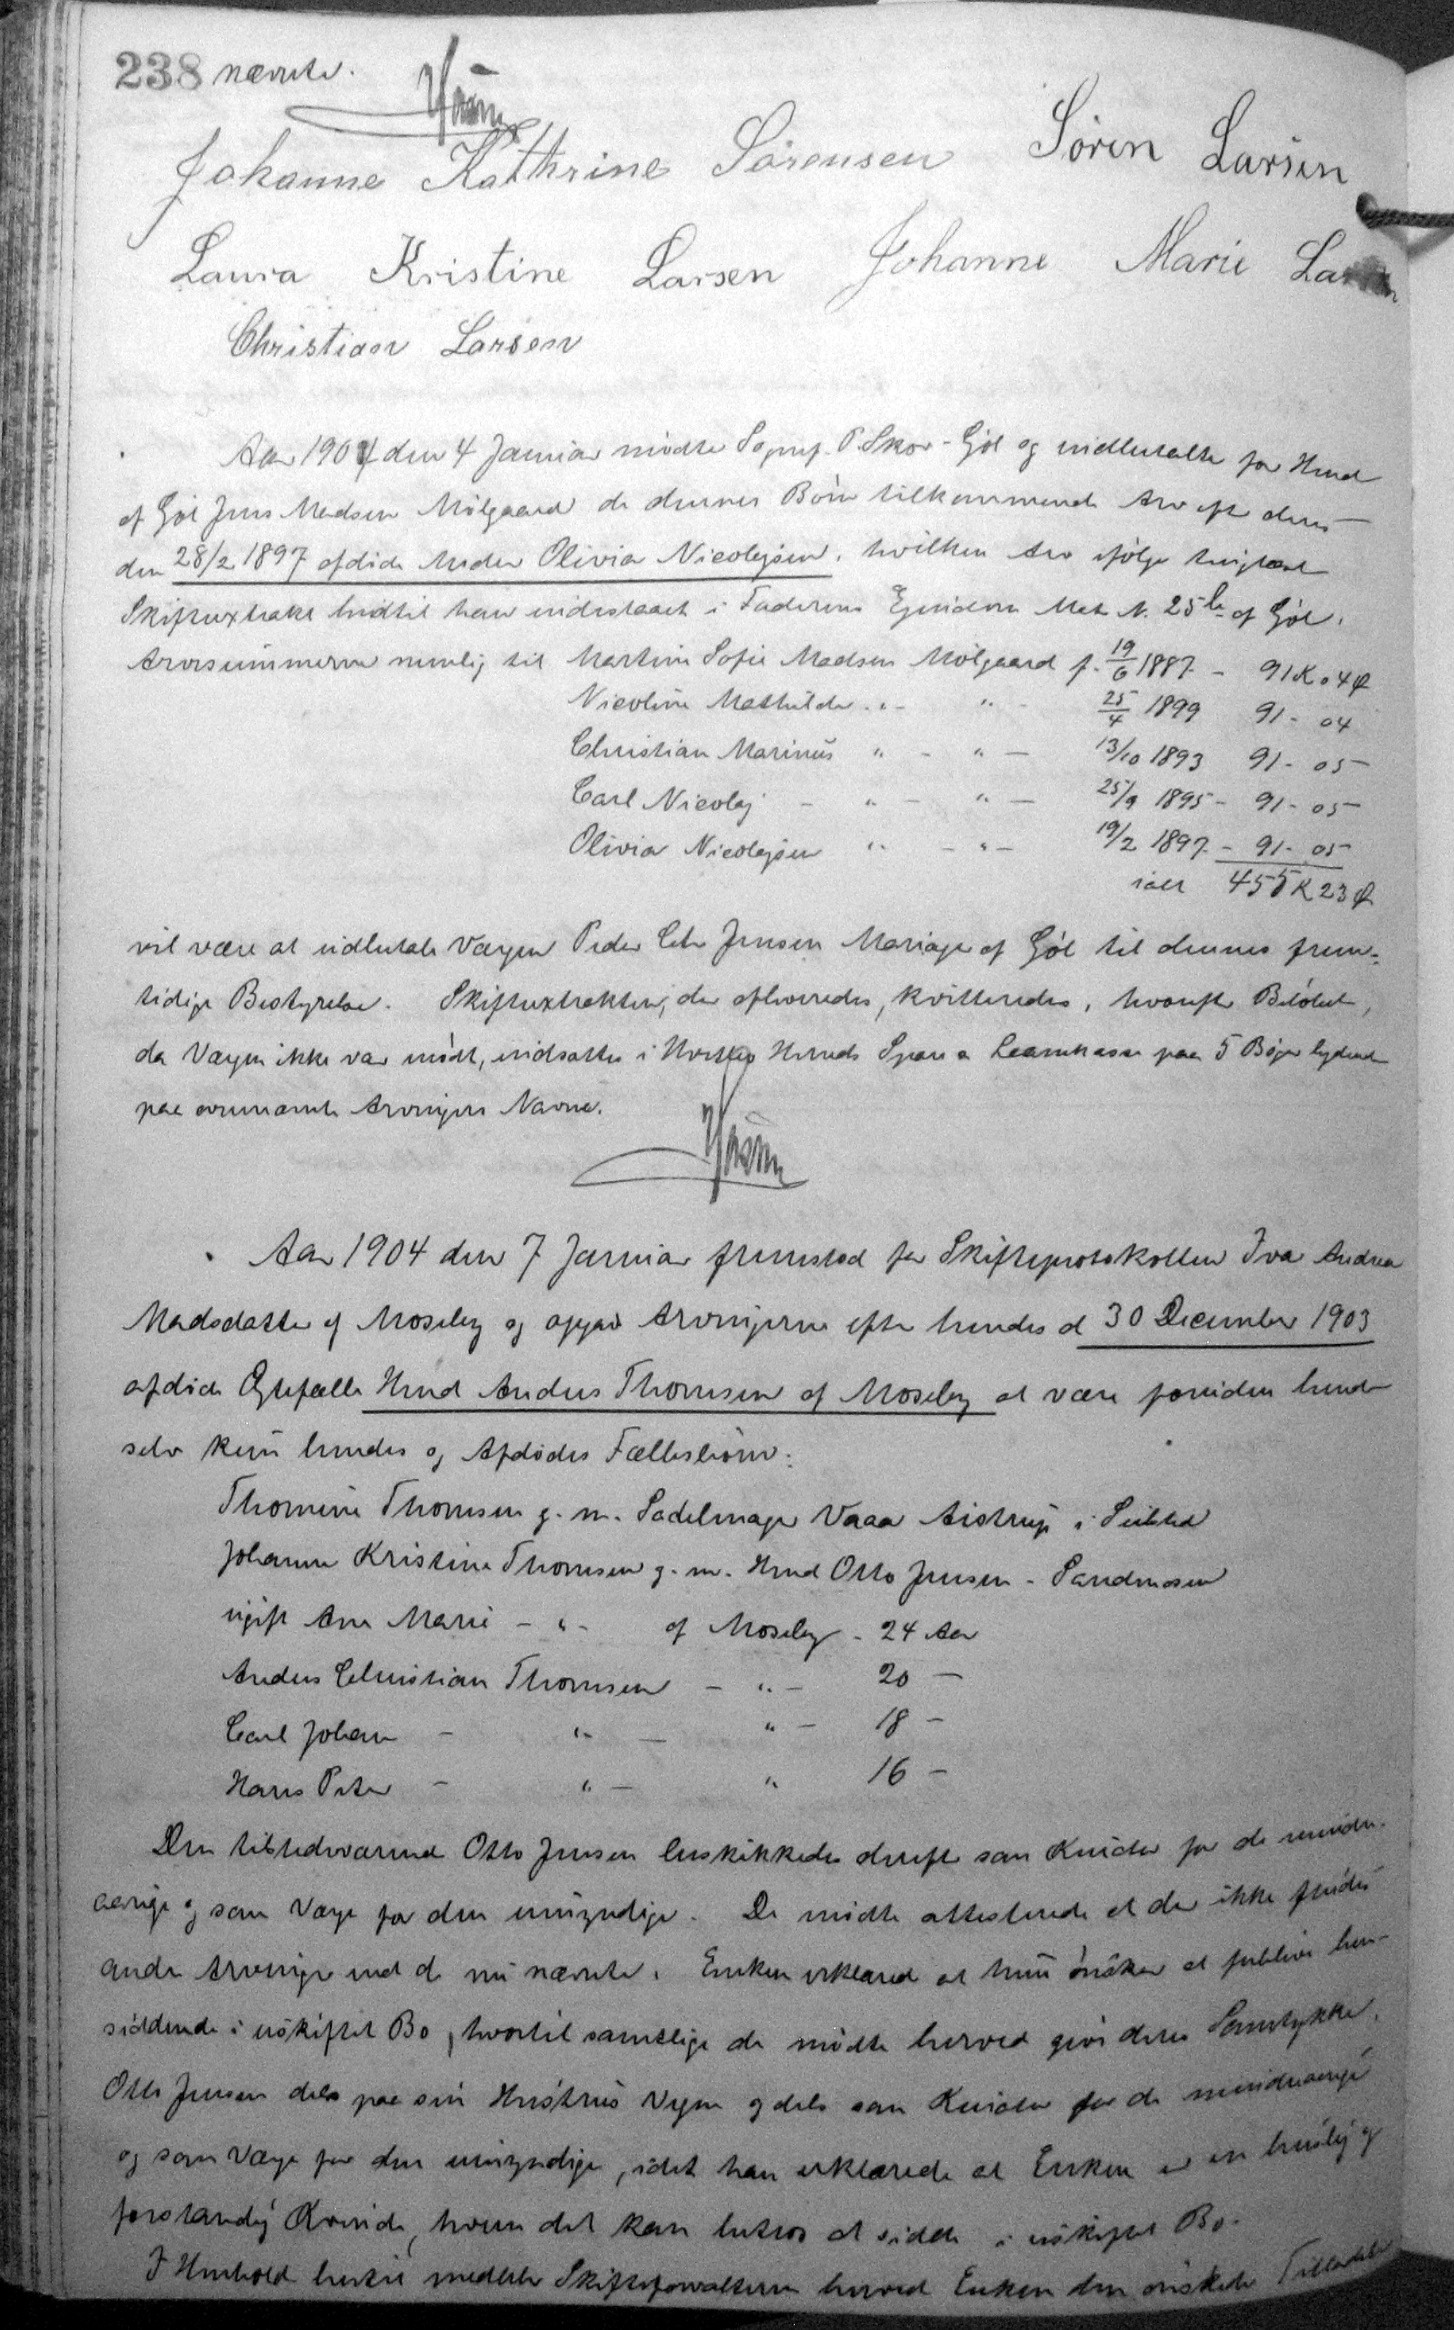 238 nævnte.
Johanne Kathrine Sørensen Søren Larsen
Laura Kristine Larsen Johanne Marie Larsen
Christian Larsen
Aar 1904 den 4 Januar mødte Sognef. P. Skov - Gjøl og indbetalte for Hmd
af Gjøl Jens Madsen Mølgaard de dennes Børn tilkommende Arv efter deres
den 28/2 1897 afdøde Moder Olivia Nicolajsen, hvilken Arv ifølge tinglæst
Skifteextrakt hidtil har indestaaet i Faderens Ejendom Mat N. 25 b af Gjøl.
Arvesummerne nemlig til Martine Sofie Madsen Mølgaard f. 19/6 1887 - 91 K 04 Ø
Nicoline Mathilde " - " - 25/4 1899 91 - 04
Christian Marinus " - " - 13/10 1893 91 - 05
Carl Nicolaj - " - " - 25/9 1895 - 91 - 05
Olivia Nicolajsen " - " - 19/2 1897 - 91 - 05
ialt 455 K 23 Ø
vil være at udbetale Værgen Peder Chr Jensen Mariager af Gjøl til dennes frem-
tidige Bestyrelse. Skifteextrakten, der afleveredes, kvitteredes, hvorefter Beløbet,
da Værgen ikke var mødt, indsattes i Hvetbo Herreds Spare & Laanekasse paa 5 Bøger lydende
paa ovennævnte Arvingers Navne.
Aar 1904 den 7 Januar fremstod for Skifteprotokollen Iva Andrea
Madsdatter af Moseby og opgav Arvingerne efter hendes d 30 December 1903
afdøde Ægtefælle Hmd Anders Thomsen af Moseby at være foruden hende
selv kun hendes og Afdødes Fællesbørn:
Thomine Thomsen g. m. Sadelmager Vaaa Aistrup i Seilstrd
Johanne Kristine Thomsen g. m. Hmd Otto Jensen - Sandmosen
ugift Ane Marie - " - af Moseby - 24 Aar
Anders Christian Thomsen - " - 20 -
Carl Johan - " - " - 18 -
Hans Peter - " - " 16 -
Den tilstedeværende Otto Jensen beskikkedes derefter som Kurator for de mindre-
aarige og som Værge for den umyndige. De mødte attesterede at der ikke findes
andre Arvinger end de nu nævnte. Enken erklæred at hun ønsker at forblive hen-
siddende i uskiftet Bo, hvortil samtlige de mødte herved give deres Samtykke,
Otto Jensen dels paa sin Hustrus Vegne og dels som Kurator for de mindreaarige
og som Værge for den umyndige, idet han erklærede at Enken er en huslig og
forstandig Kvinde, hvem det kan betros at sidde i uskiftet Bo.
I Henhold hertil meddeler Skifteforvalteren herved Enken den ønskede Tilladelse